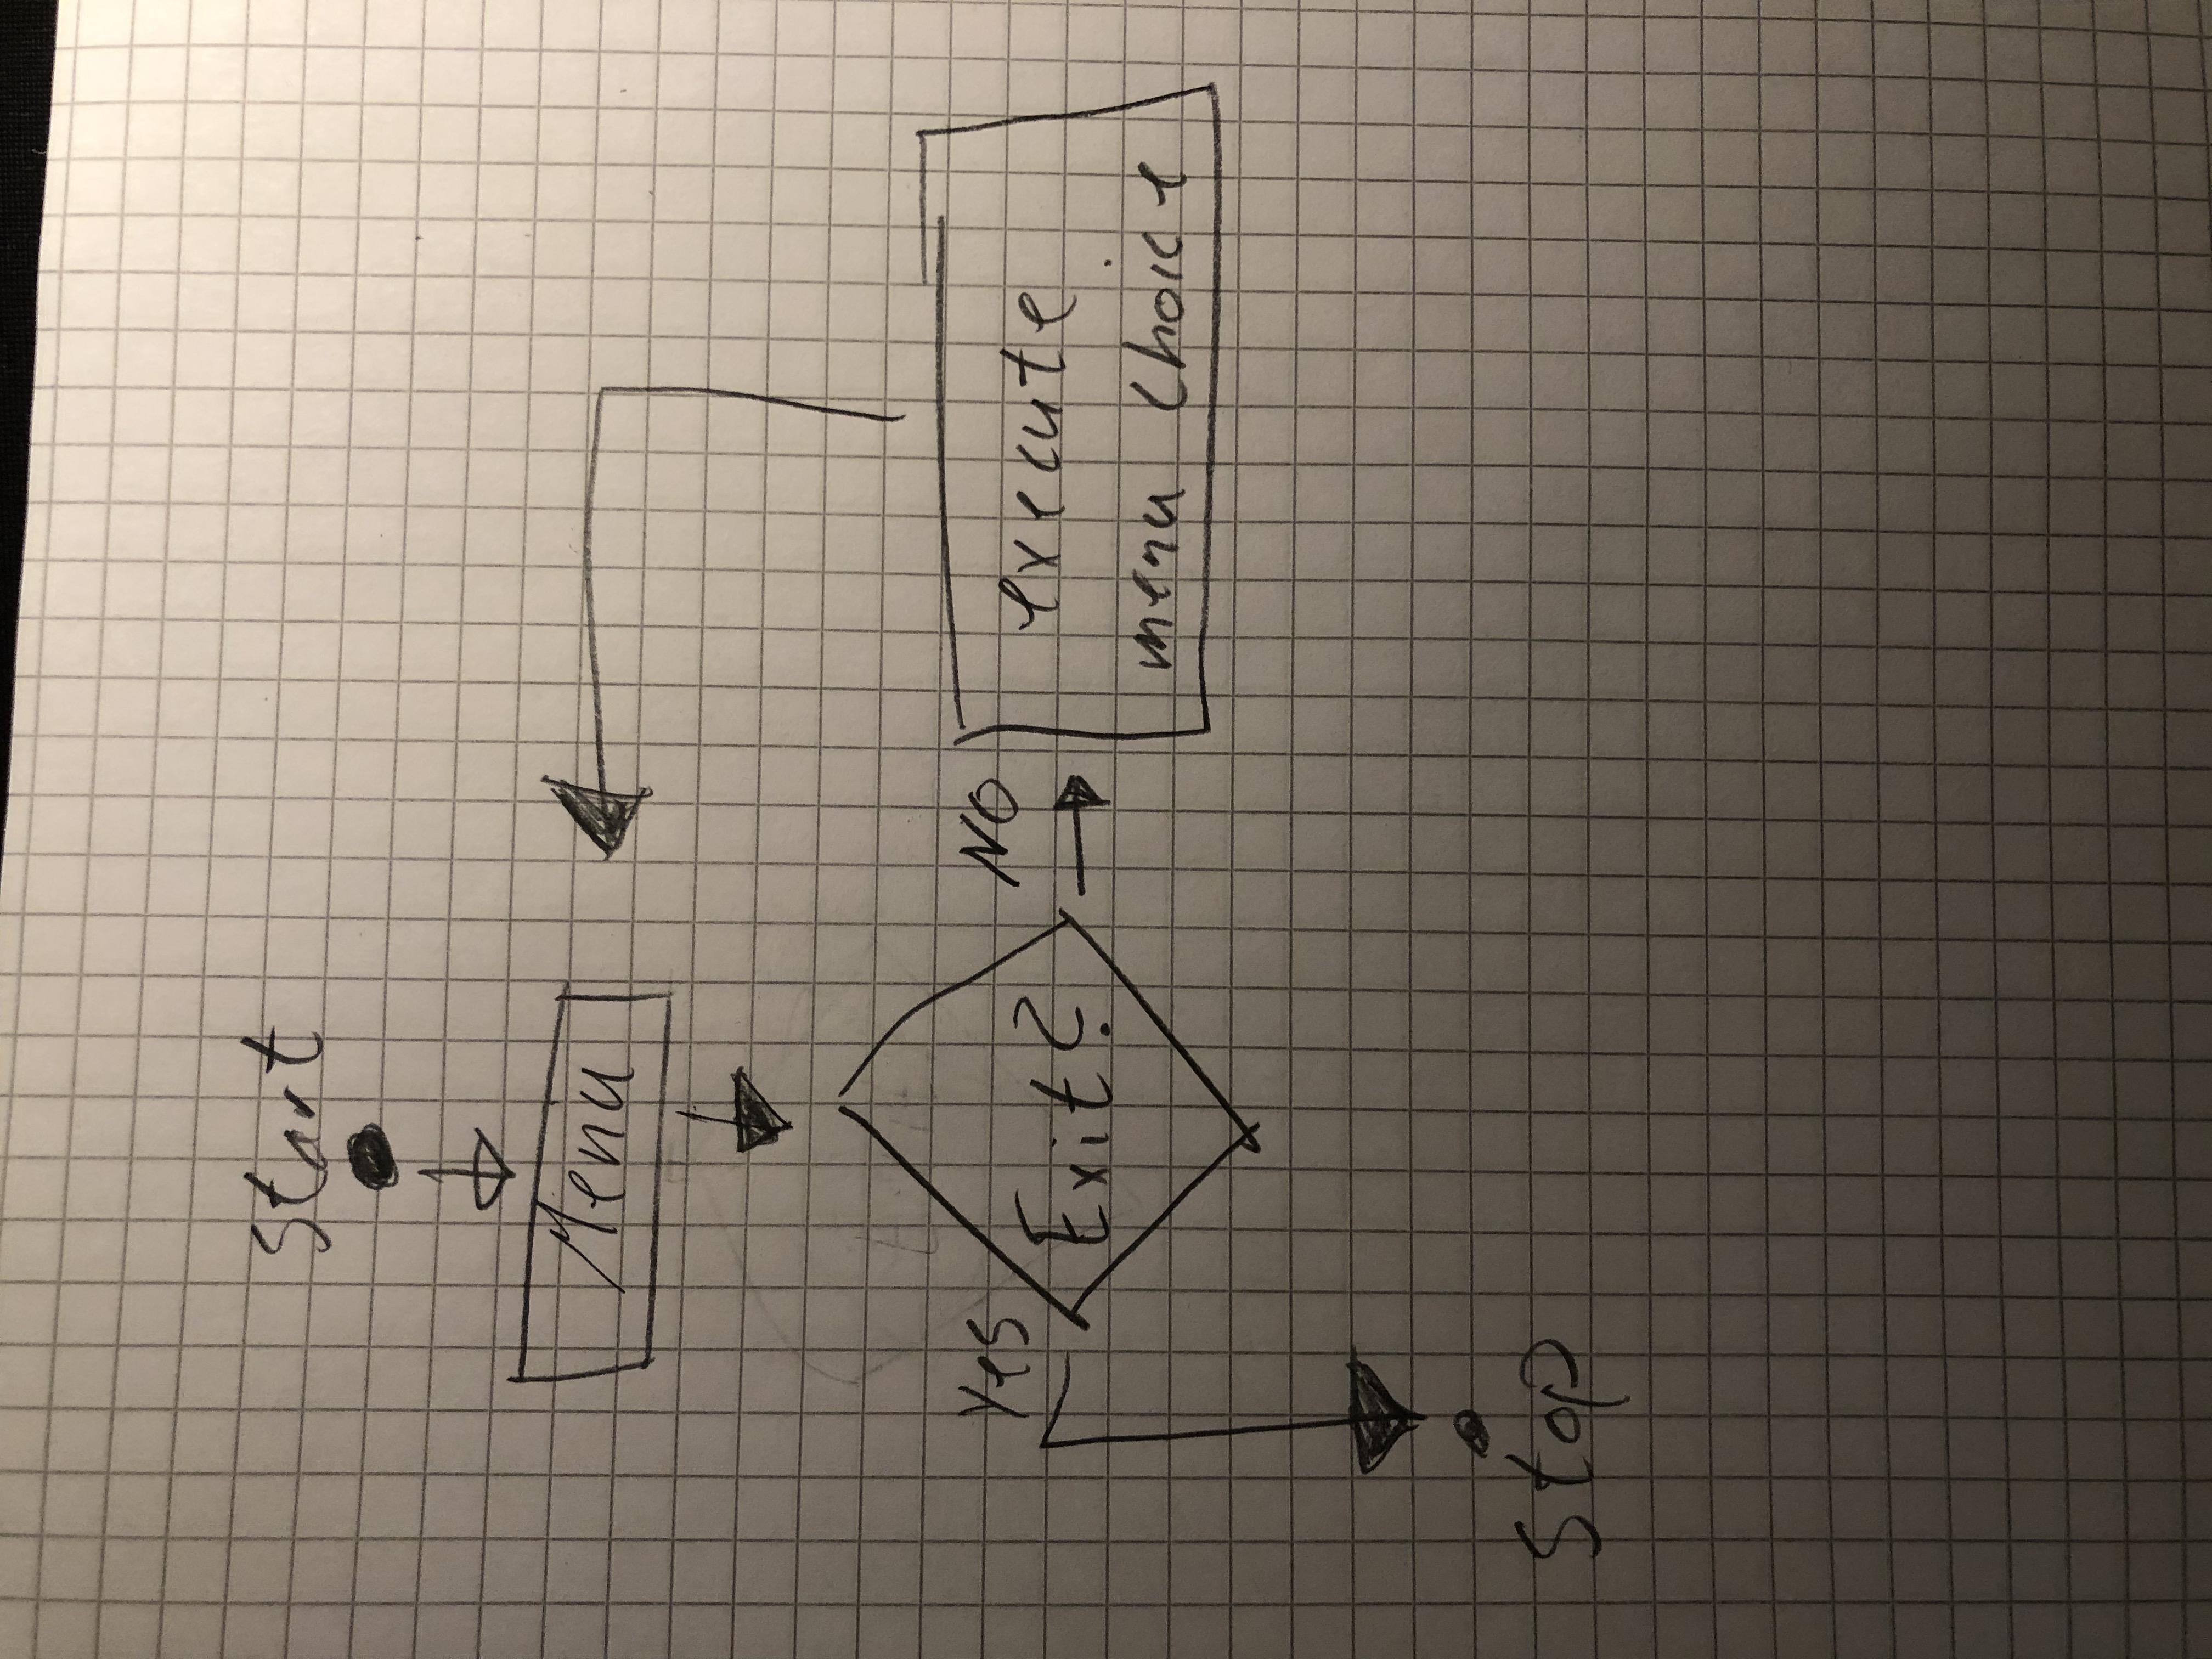 Start
Menu
Yes
Exit?
NO
execute
menu choice
Stop